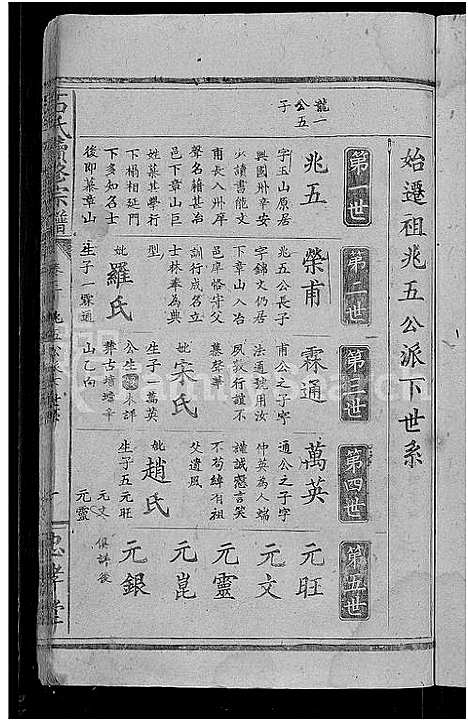 始遷祖兆五公派下世系
第一世
第二世
第三世
第四世
第五世
龍一
公五
子
兆五
字玉山原居
興國州辛安
少讀書能文
甫長入州庠
聲名籍甚冶
邑下章山巨
姓慕其學行
下榻相延門
下多知名士
後即慕章山
榮甫
兆五公長子
字錦文仍居
下章山入冶
邑庠恪守父
訓行成名立
士林奉為典
型
妣羅氏
生子一霖通
霖通
甫公之子字
法通號用汝
夙敦行誼不
慕榮華
妣宋氏
生子一萬英
公生
葬古塘塆辛
山乙向
萬英
通公之子字
仲英為人端
謹誠愨言笑
不苟緯有祖
父遺風
妣趙氏
生子五元旺
元文
元靈
元旺
元文
元靈
元崑
元銀
俱詳後
氏續修宗譜
兆五公派下世系
忠孝堂